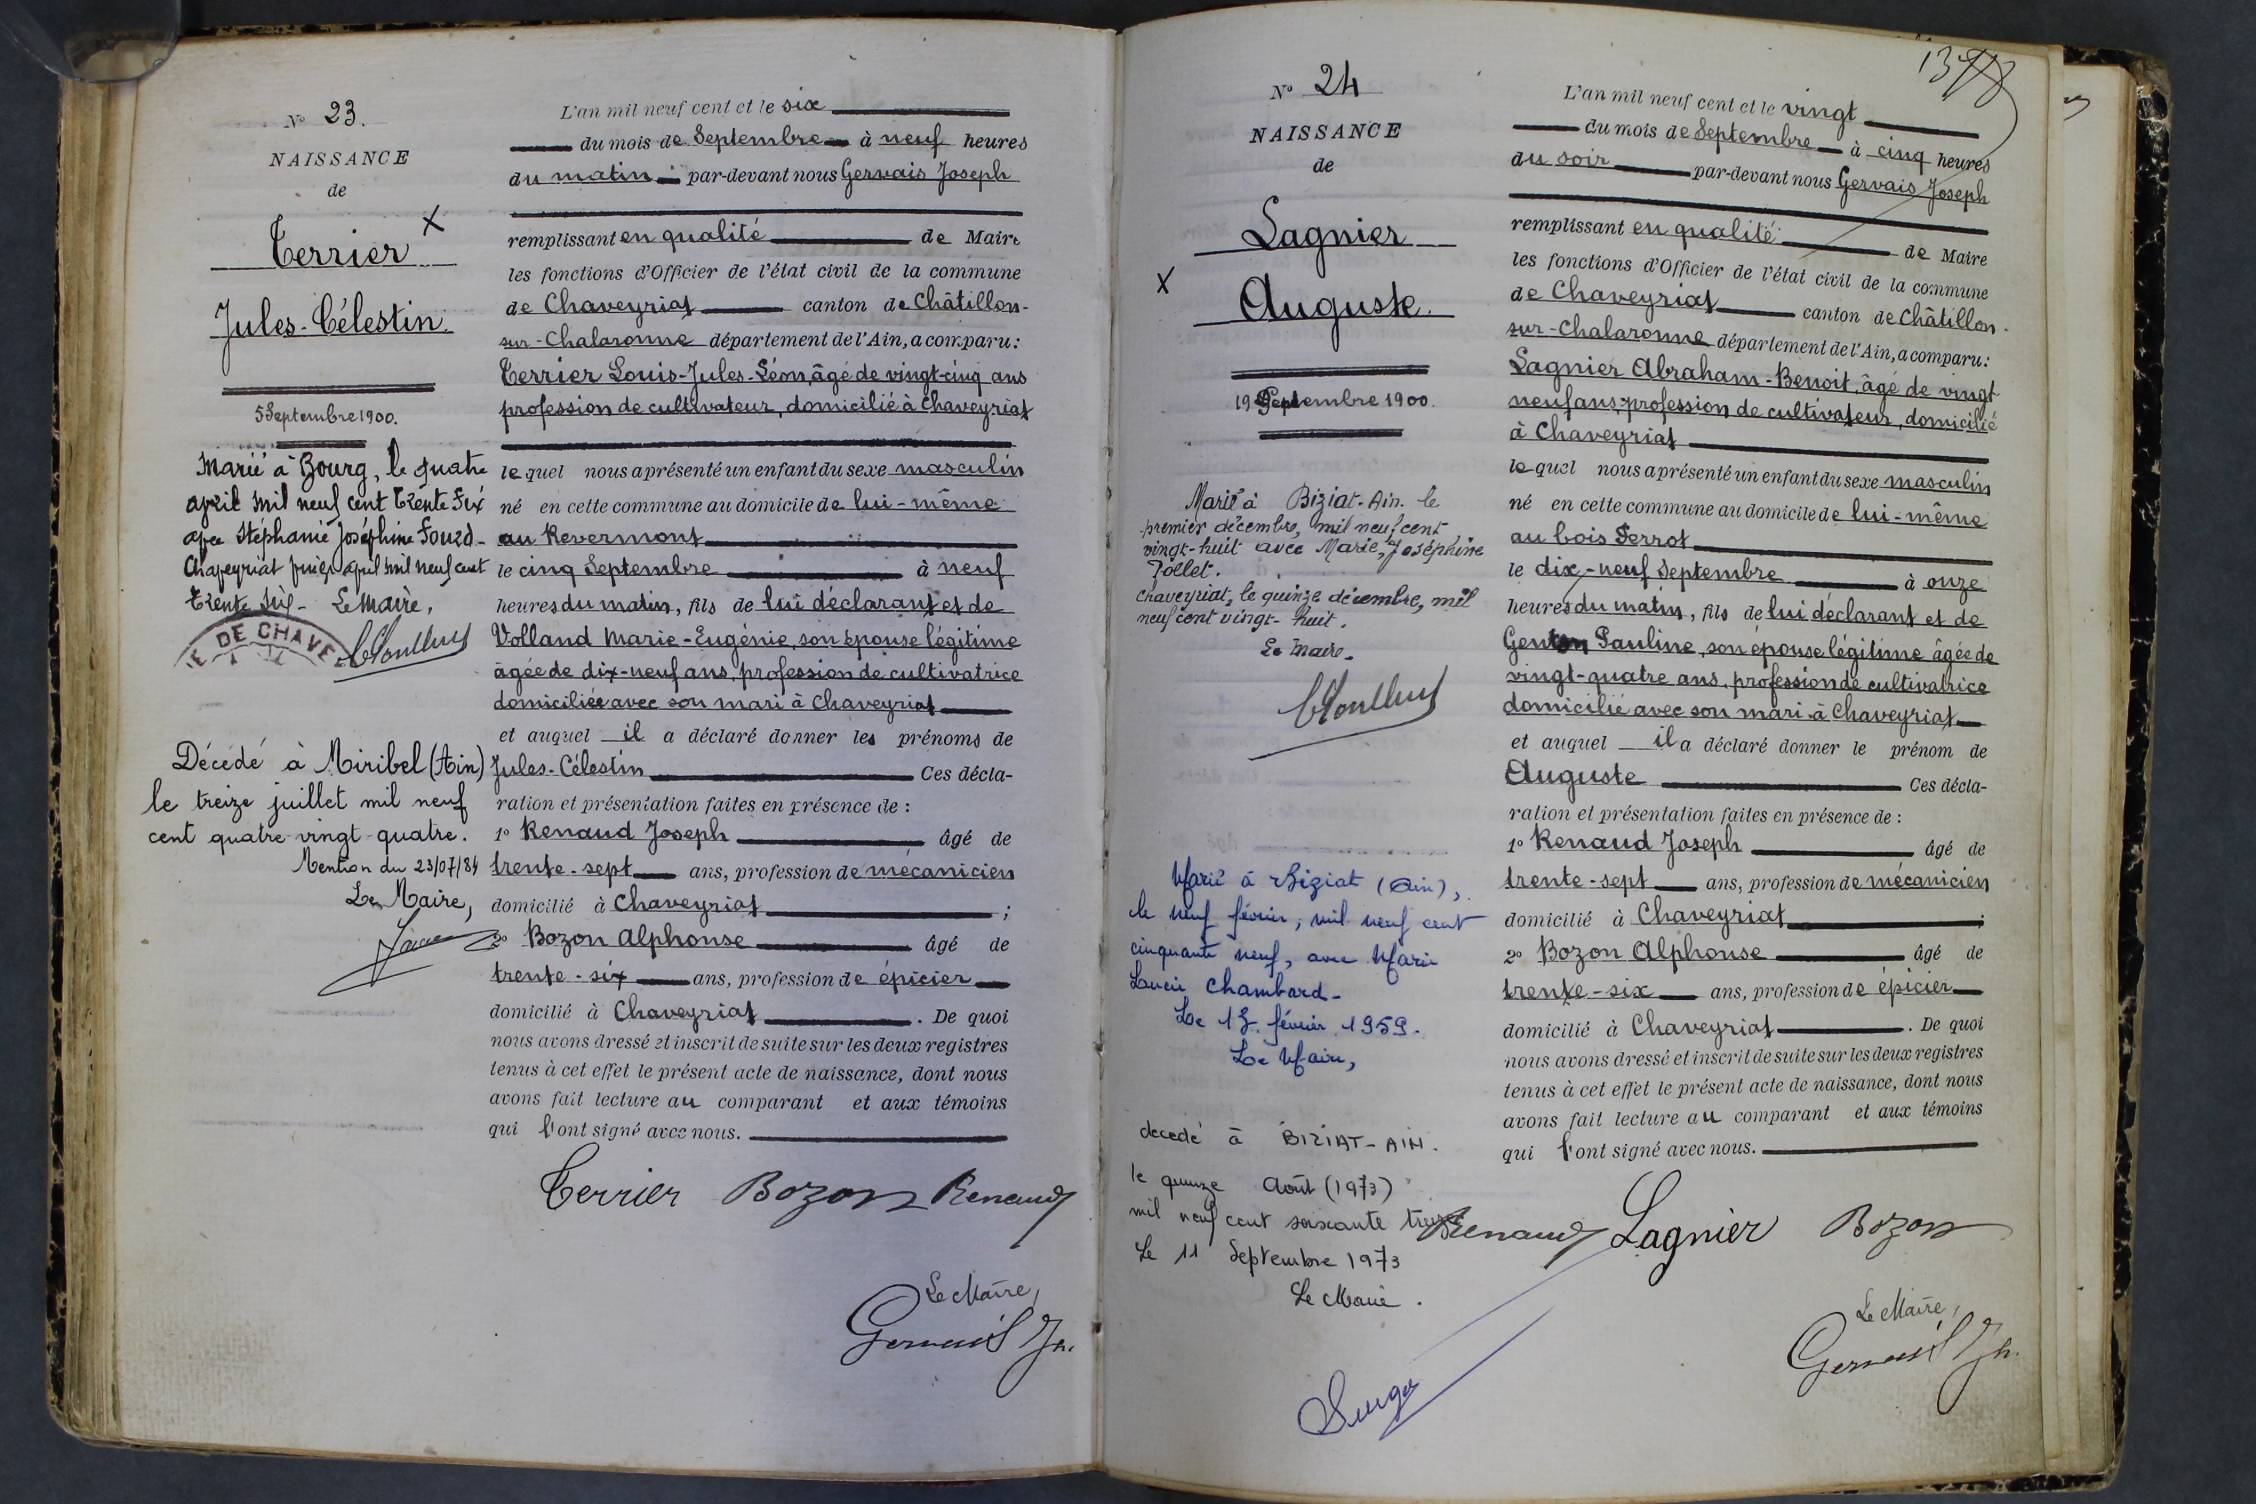 N° 23.
NAISSANCE
de
Terrier X
Jules-Célestin
5 Septembre 1900.
Marié à Bourg, le quatre
avril mil neuf cent trente six
avec Stéphanie Joséphine
Chaveyriat avril mil neuf cent
trente six - Le Maire,
E DE CHAVE
Décédé à Miribel (Ain)
le treize juillet mil neuf
cent quatre-vingt-quatre.
Mention du 23/07/84
Le Maire,
L'an mil neuf cent et le six
du mois de Septembre à neuf heures
du matin par-devant nous Gervais Joseph
remplissant en qualité de Maire
les fonctions d'Officier de l'état civil de la commune
de Chaveyriat canton de Châtillon-
sur-Chalaronne département de l'Ain, a comparu:
Terrier Louis-Jules-Léon, âgé de vingt-cinq ans
profession de cultivateur, domicilié à Chaveyriat
lequel nous a présenté un enfant du sexe masculin
né en cette commune au domicile de lui-même
au Revermont
le cinq Septembre à neuf
heures du matin, fils de lui déclarant et de
Volland Marie-Eugénie, son épouse légitime
âgée de dix-neuf ans, profession de cultivatrice
domiciliée avec son mari à Chaveyriat
et auquel il a déclaré donner les prénoms de
Jules-Célestin Ces décla-
ration et présentation faites en présence de :
1° Renaud Joseph âgé de
trente-sept ans, profession de mécanicien
domicilié à Chaveyriat ;
2° Bozon Alphonse âgé de
trente-six ans, profession de épicier
domicilié à Chaveyriat . De quoi
nous avons dressé et inscrit de suite sur les deux registres
tenus à cet effet le présent acte de naissance, dont nous
avons fait lecture au comparant et aux témoins
qui l'ont signé avec nous.
Terrier Bozon Renaud
Le Maire,
Gervais Jh.
1378
N° 24
NAISSANCE
de
Lagnier
X
Auguste.
19 Septembre 1900.
Marié à Biziat-Ain. le
premier décembre, mil neuf cent
vingt-huit avec Marie, Joséphine
Pollet.
Chaveyriat, le quinze décembre, mil
neuf cent vingt-huit.
Le Maire.
Marié à Biziat (Ain),
le neuf février, mil neuf cent
cinquante neuf, avec Marie
Lucie Chambard-
Le 13 février 1959.
Le Maire,
decedé à BIZIAT-AIN.
le quinze Août (1973)
mil neuf cent soixante treize
Le 11 Septembre 1973
Le Maire.
L'an mil neuf cent et le vingt
du mois de Septembre à cinq heures
du soir par-devant nous Gervais Joseph
remplissant en qualité de Maire
les fonctions d'Officier de l'état civil de la commune
de Chaveyriat canton de Châtillon-
sur-Chalaronne département de l'Ain, a comparu:
Lagnier Abraham-Benoit, âgé de vingt
neuf ans, profession de cultivateur, domicilié
à Chaveyriat
lequel nous a présenté un enfant du sexe masculin
né en cette commune au domicile de lui-même
au bois Perrot
le dix-neuf Septembre à onze
heures du matin, fils de lui déclarant et de
Genton Pauline, son épouse légitime âgée de
vingt-quatre ans, profession de cultivatrice
domicilié avec son mari à Chaveyriat
et auquel il a déclaré donner le prénom de
Auguste Ces décla-
ration et présentation faites en présence de :
1° Renaud Joseph âgé de
trente-sept ans, profession de mécanicien
domicilié à Chaveyriat ;
2° Bozon Alphonse âgé de
trente-six ans, profession de épicier
domicilié à Chaveyriat . De quoi
nous avons dressé et inscrit de suite sur les deux registres
tenus à cet effet le présent acte de naissance, dont nous
avons fait lecture au comparant et aux témoins
qui l'ont signé avec nous.
Renaud Lagnier Bozon
Le Maire,
Gervais Jh.